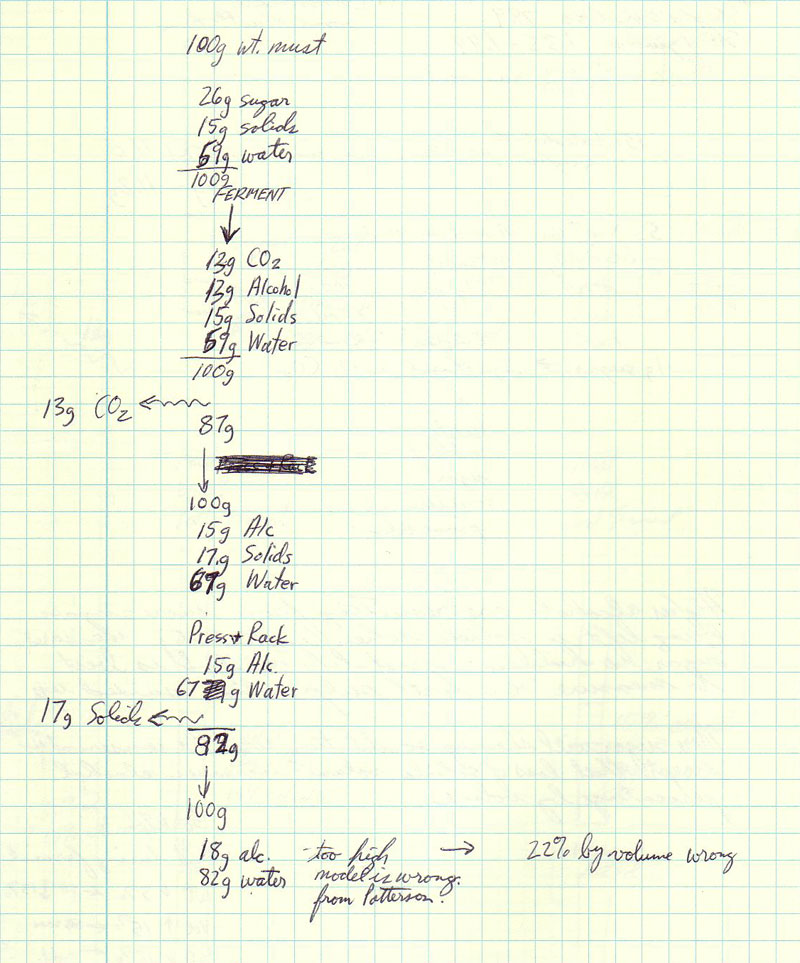 100g wt. must
26g sugar
15g solids
59g water
100g
FERMENT
13g CO2
13g Alcohol
15g Solids
59g Water
100g
13g CO2
87g
100g
15g Alc
17g Solids
67g Water
Press + Rack
15g Alc.
67 g Water
17g Solids
82g
100g
18g alc. - too high → 22% by volume wrong
82g water model is wrong.
from Patterson.